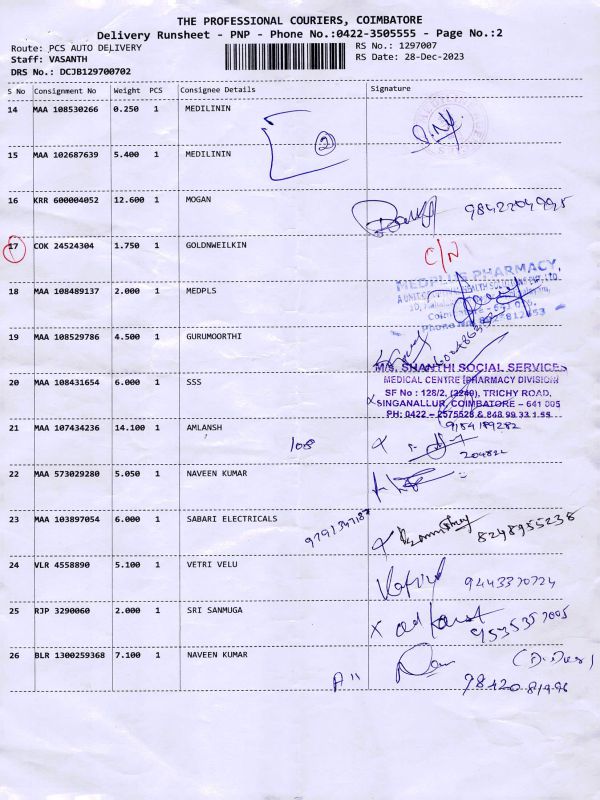 THE PROFESSIONAL COURIERS, COIMBATORE
Delivery Runsheet - PNP - Phone No.:0422-3505555 - Page No.:2
Route: PCS AUTO DELIVERY
Staff: VASANTH
DRS No.: DCJB129700702
RS No.: 1297007
RS Date: 28-Dec-2023
S No Consignment No Weight PCS Consignee Details Signature
14 MAA 108530266 0.250 1 MEDILININ
2
15 MAA 102687639 5.400 1 MEDILININ
16 KRR 600004052 12.600 1 MOGAN
17 COK 24524304 1.750 1 GOLDNWEILKIN C/N
MEDPLUS PHARMACY
18 MAA 108489137 2.000 1 MEDPLS
19 MAA 108529786 4.500 1 GURUMOORTHI
M/S. SHANTHI SOCIAL SERVICES
MEDICAL CENTRE (PHARMACY DIVISION)
20 MAA 108431654 6.000 1 SSS
SF No : 128/2, (2240), TRICHY ROAD,
SINGANALLUR, COIMBATORE - 641 005
PH: 0422 - 2575528 & 848 99 33 1 55
21 MAA 107434236 14.100 1 AMLANSH
108
204822
22 MAA 573029280 5.050 1 NAVEEN KUMAR
23 MAA 103897054 6.000 1 SABARI ELECTRICALS
8248955238
24 VLR 4558890 5.100 1 VETRI VELU
25 RJP 3290060 2.000 1 SRI SANMUGA
26 BLR 1300259368 7.100 1 NAVEEN KUMAR